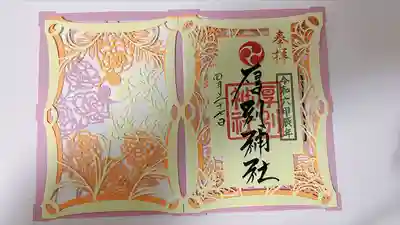 奉拝
令和六甲辰年
厚別神社
厚別神社
四月二十七日